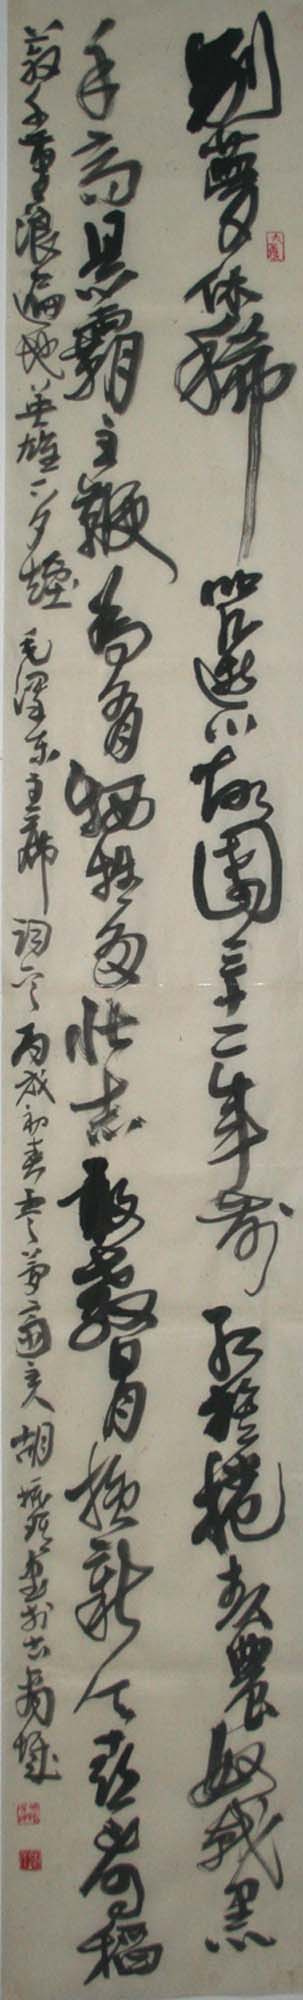 别梦依稀咒逝川故园三十二年前红旗卷起农奴戟黑
手高悬霸主鞭为有牺牲多壮志敢教日月换新天喜看稻
菽千重浪遍地英雄下夕烟 毛泽东主席 词 丙戌初春 梦斋主人 胡